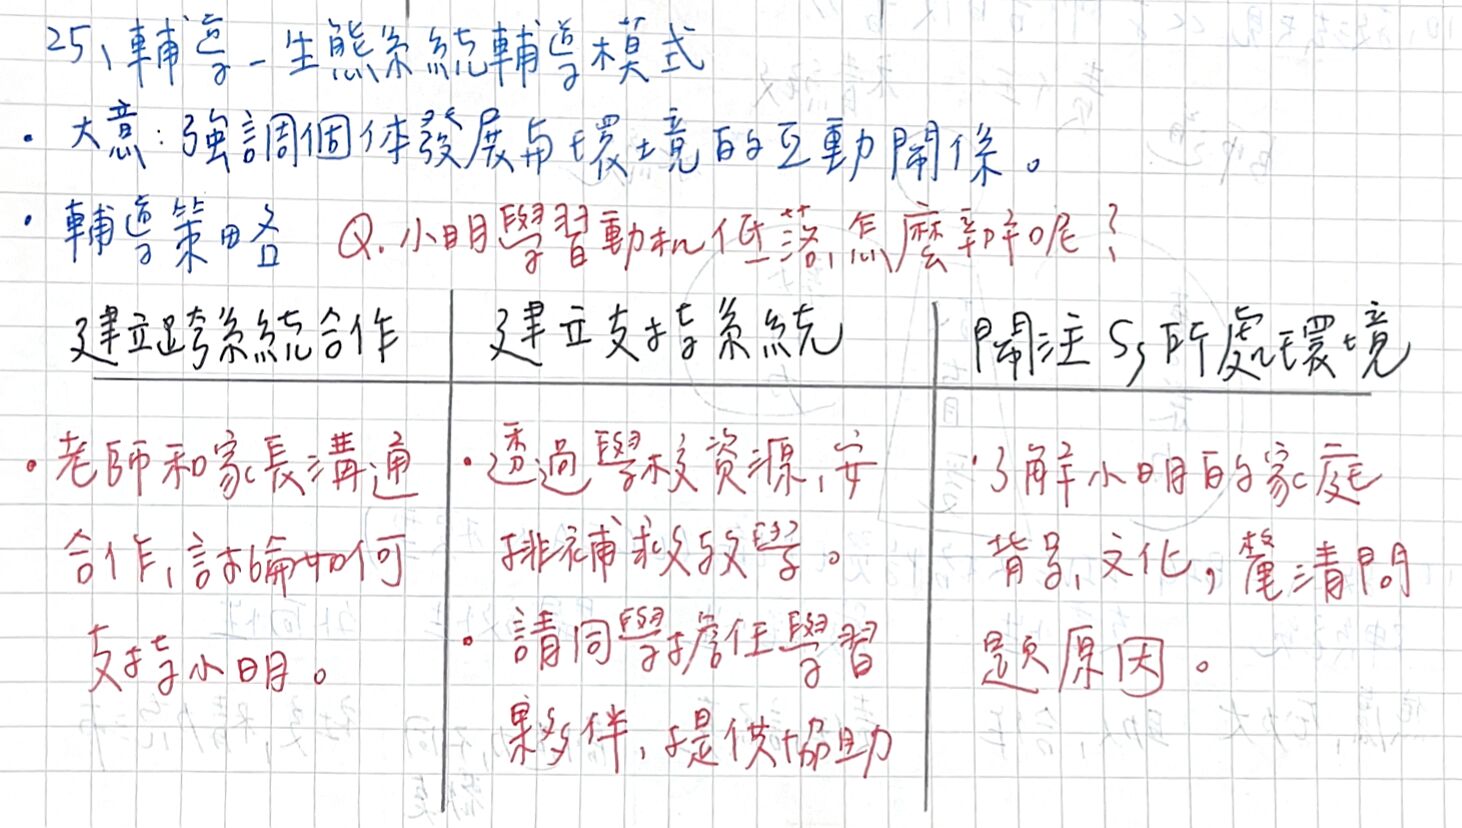 25、輔導-生態系統輔導模式
• 大意:強調個体發展与環境的互動關係。
• 輔導策略 Q.小明學習動机低落,怎麼辦呢?
建立跨系統合作
• 老師和家長溝通
合作,討論如何
支持小明。
建立支持系統
• 透過學校資源,安
排補救教學。
• 請同學擔任學習
夥伴,提供協助
關注Ss所處環境
• 了解小明的家庭
背景,文化,釐清問
題原因。